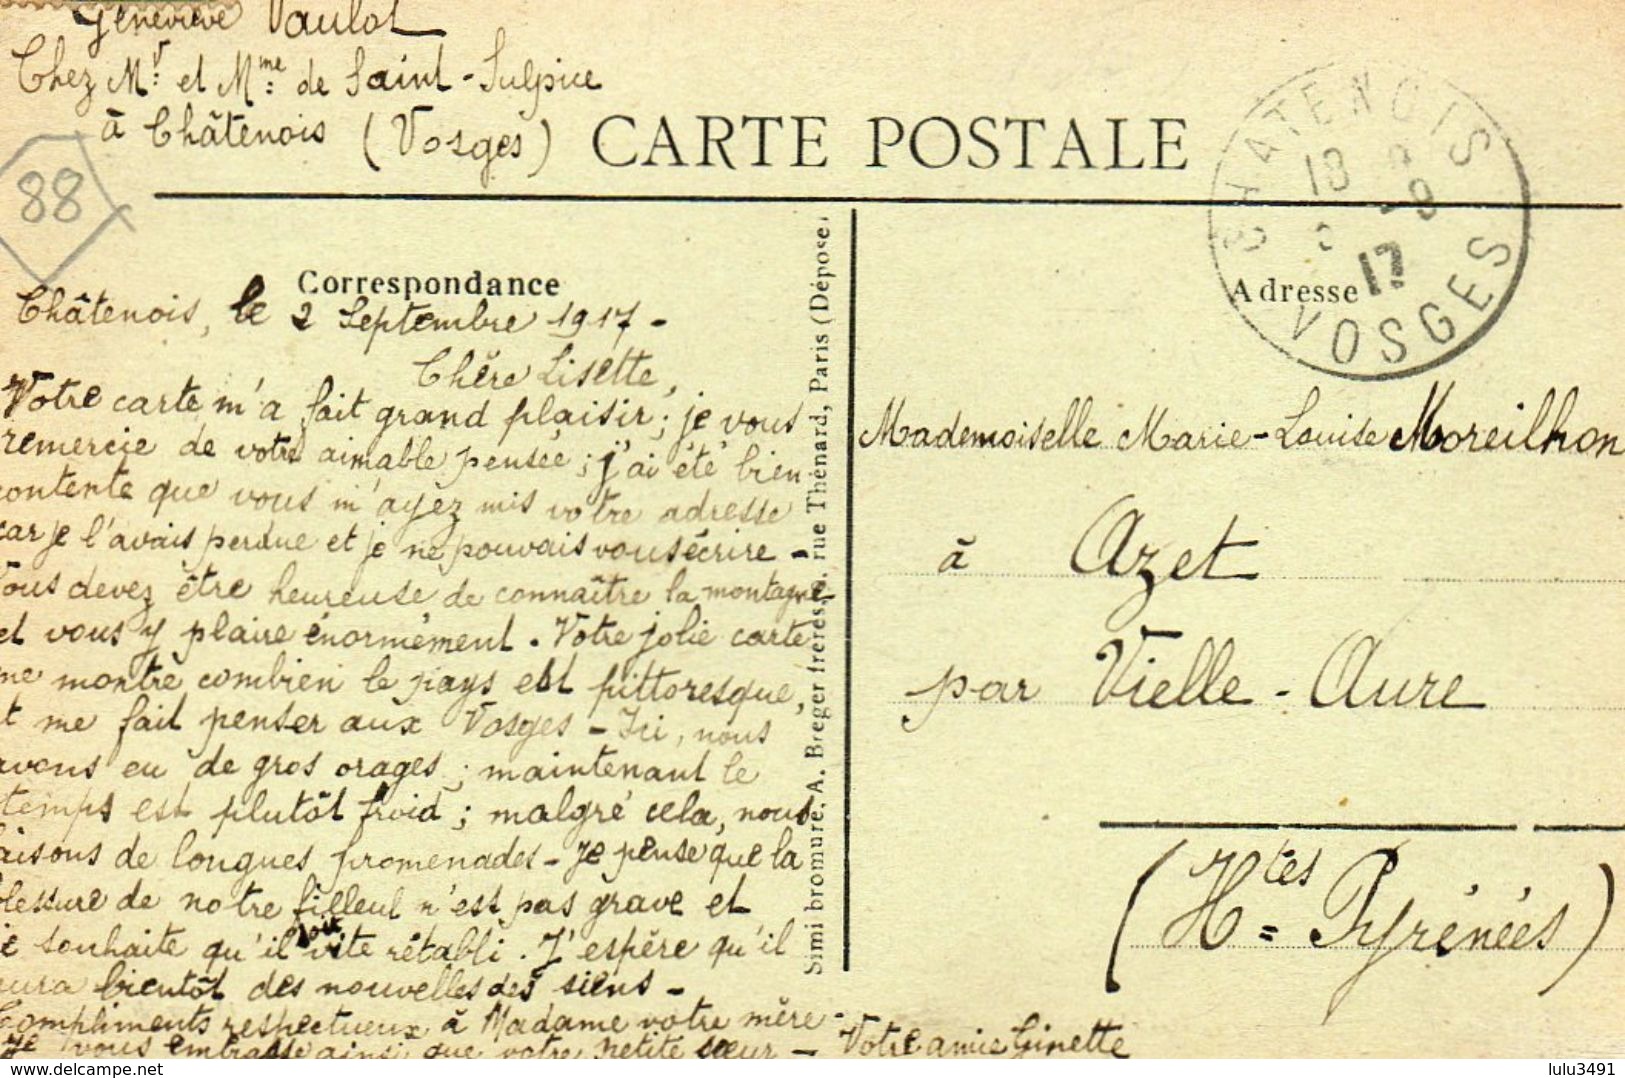 Geneviève Vaulot
Chez Mr et Mme de Saint-Sulpice
à Châtenois (Vosges)
88
CARTE POSTALE
CHATENOIS
18
-9
17
VOSGES
Correspondance
Adresse
Châtenois, le 2 Septembre 1917 -
Chère Lisette,
Votre carte m'a fait grand plaisir; je vous
remercie de votre aimable pensée; j'ai été bien
contente que vous m'ayez mis votre adresse
car je l'avais perdue et je ne pouvais vous écrire -
Vous devez être heureuse de connaître la montagne
et vous y plaire énormément. Votre jolie carte
me montre combien le pays est pittoresque,
et me fait penser aux Vosges - Ici, nous
avons eu de gros orages; maintenant le
temps est plutôt froid; malgré cela, nous
faisons de longues promenades - Je pense que la
blessure de notre filleul n'est pas grave et
je souhaite qu'il soit vite rétabli. J'espère qu'il
aura bientôt des nouvelles des siens -
Compliments respectueux à Madame votre mère -
Je vous embrasse ainsi que votre petite sœur - Votre amie Ginette
Simi bromure. A. Breger frères, rue Thénard, Paris (Déposé)
Mademoiselle Marie-Louise Moreilhon
à Azet
par Vielle-Aure
(Htes Pyrénées)
lulu3491